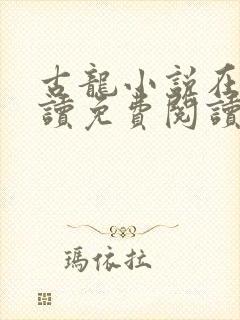 古龍小說在
讀免費閱讀
瑪依拉